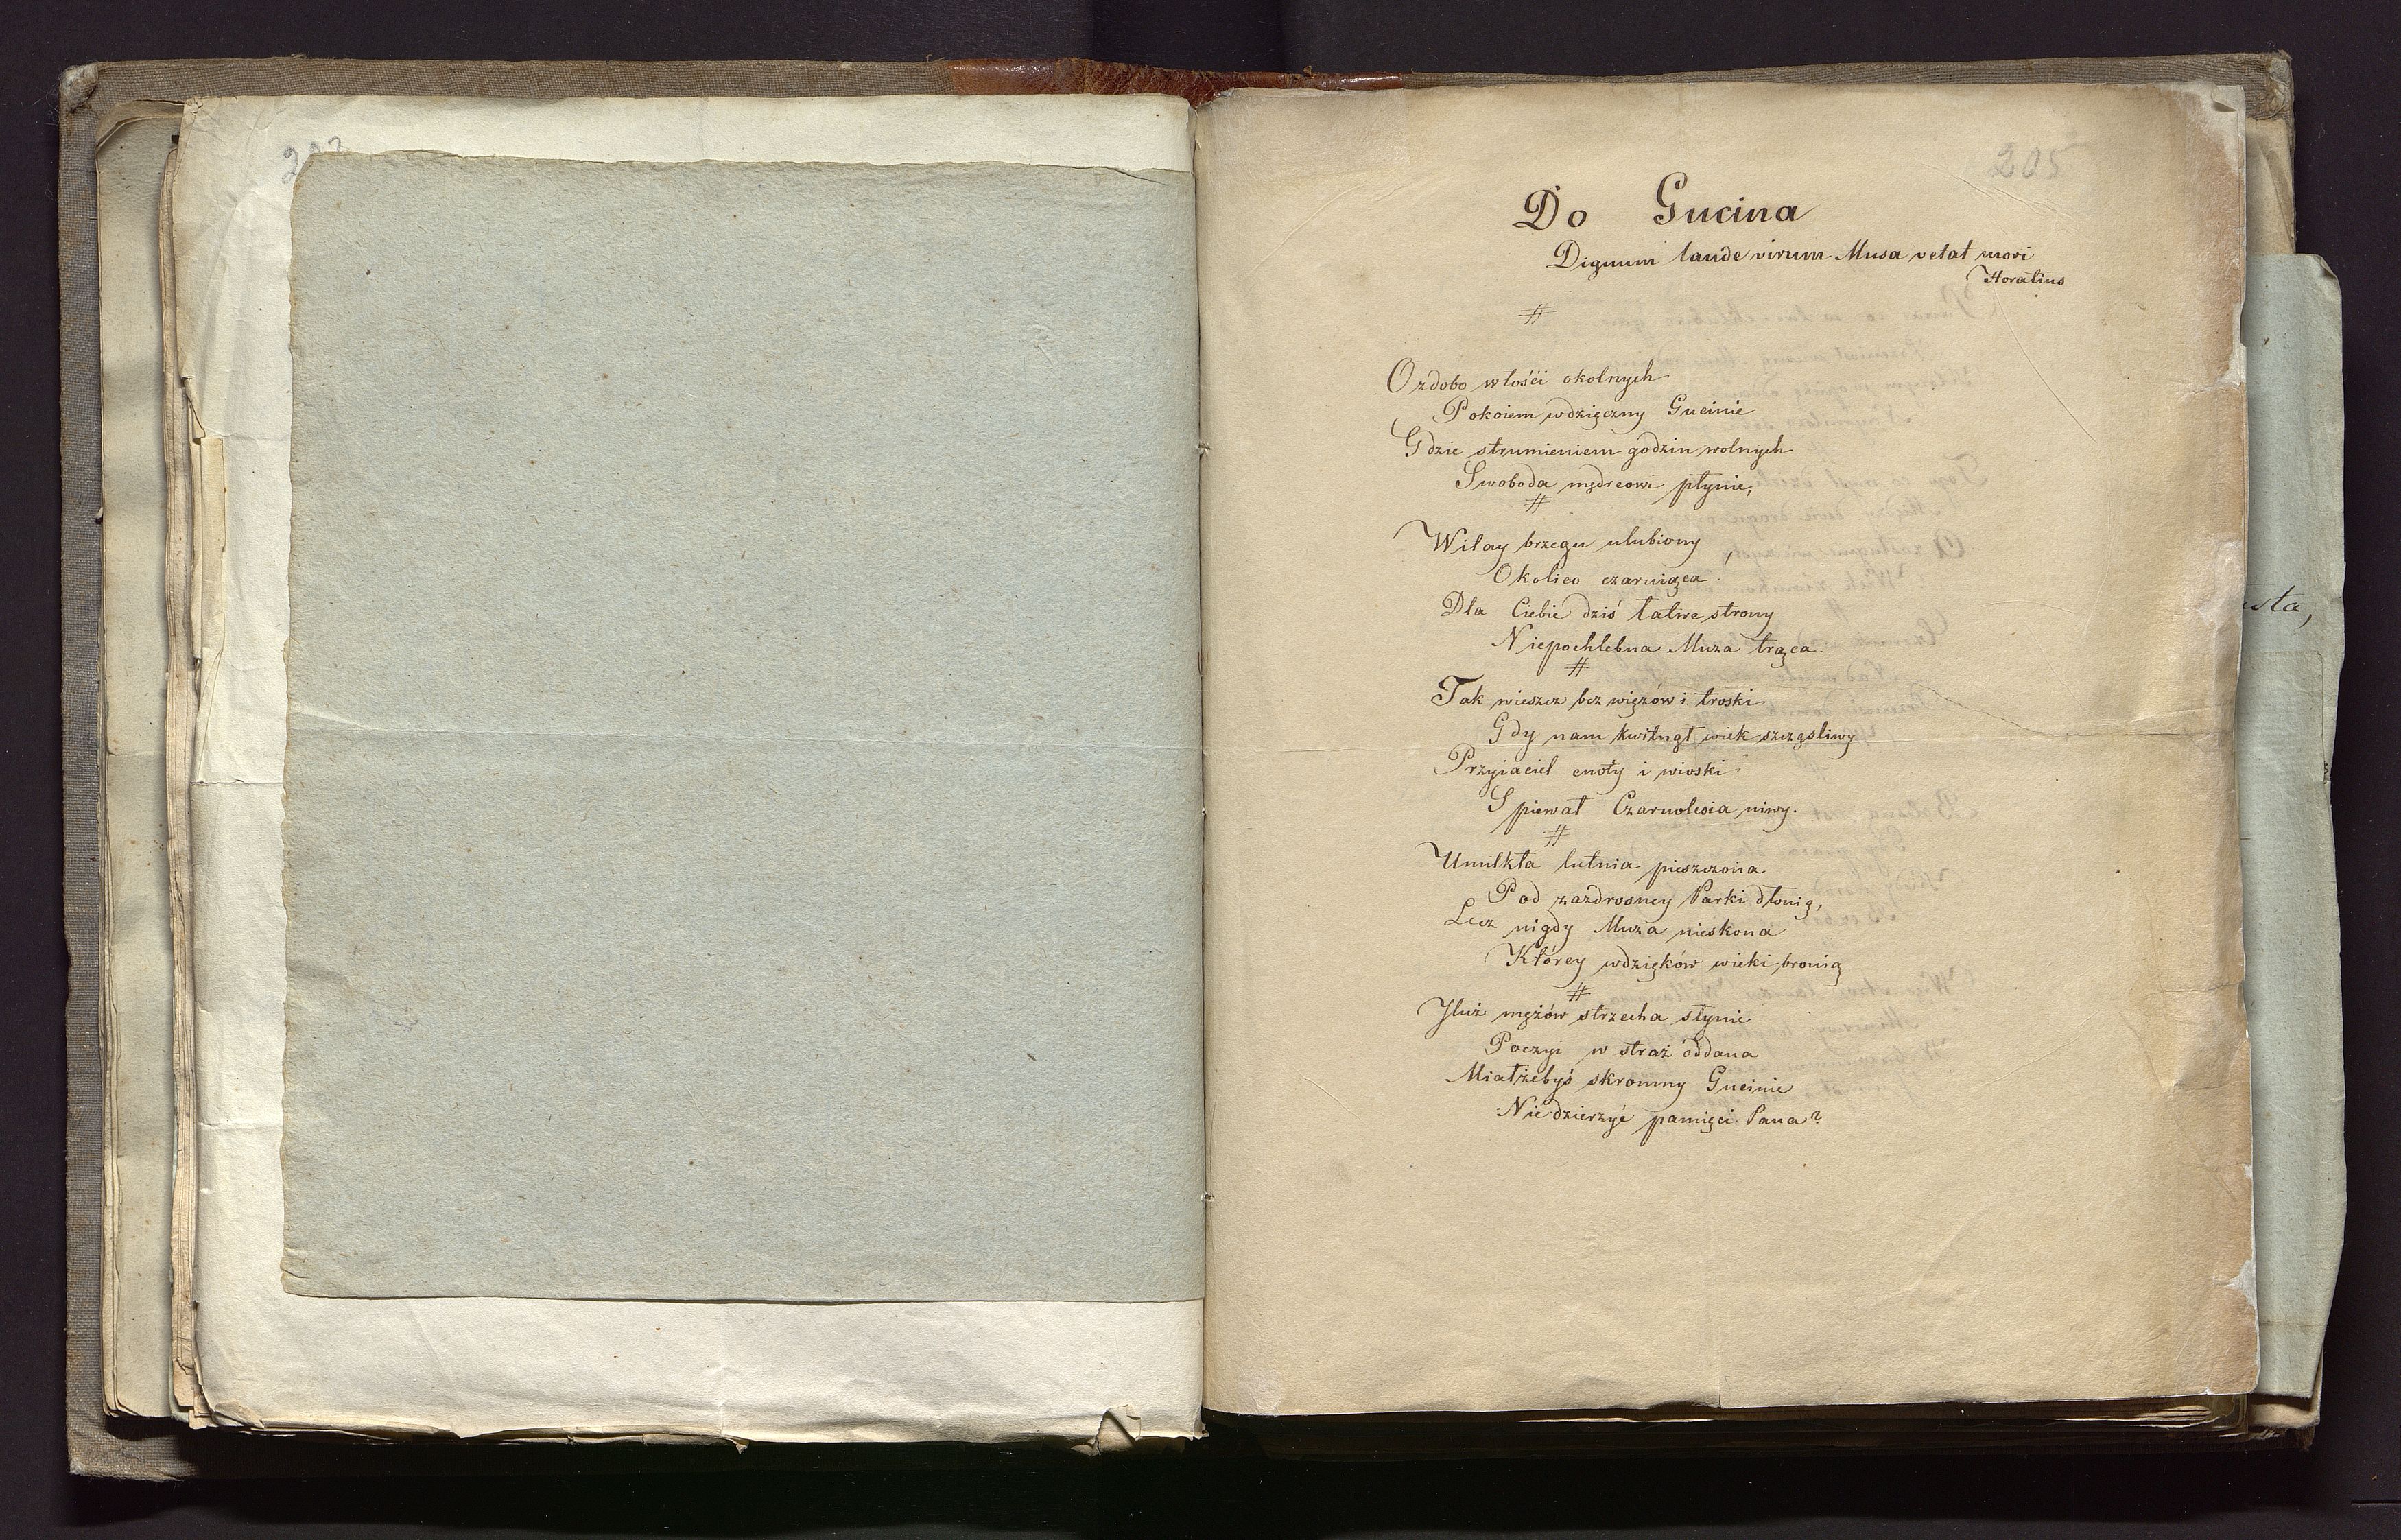 205
Do Gucina
Dignum laude virum Musa vetat mori
Horatius
#
Ozdobo włości okolnych
Pokoiem wdzięczny Gucinie
Gdzie strumieniem godzin wolnych
Swoboda mędrcowi płynie,
#
Witay brzegu ulubiony
Okolico czarniąca!
Dla Ciebie dziś łatwe strony
Niepochlebna Muza trąca.
#
Tak wieszcz bez więzów i troski
Gdy nam kwitnął wiek szczęsliwy
Przyiaciel cnoty i wioski
Spiewał Czarnolesia niwy.
#
Umilkła lutnia pieszczona
Pod zazdrosney Parki dłonią,
Lecz nigdy Muza nieskona
Którey wdzięków wieki bronią
#
Iluż mężów strzecha słynie
Poezyi w straż oddana
Miałżebyś skromny Gucinie
Nie dzierzyć pamięci Pana?